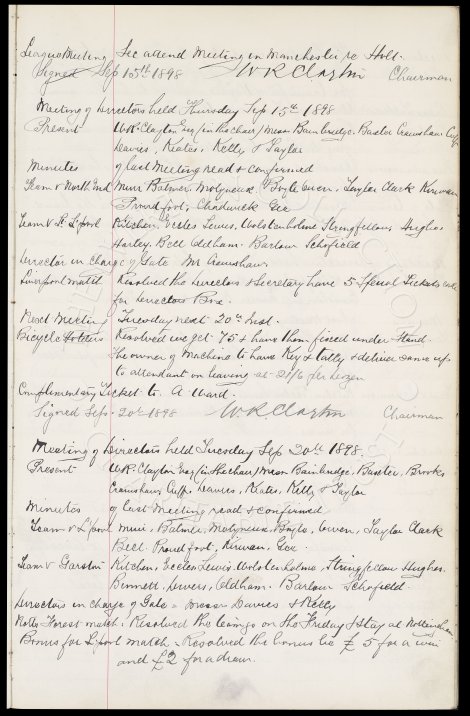 League Meeting Sec attend Meeting in Manchester re Holt.
Signed Sep 15th 1898 W R Clayton Chairman
Meeting of Directors held Thursday Sep 15th 1898
Present W.R. Clayton Esq (in the chair) Messrs Bainbridge, Baxter Crawshaw Cuffe
Davies, Keates, Kelly & Taylor
Minutes of last Meeting read & confirmed
Team v North End Muir Balmer, Molyneux, Boyle Owen, Taylor Clark Kirwan
Proudfoot, Chadwick Gee
Team v St. L'pool Kitchen, Eccles Lewis, Wolstenholme Stringfellow Hughes
Hartley, Bell Oldham. Barlow Schofield
Director in charge of Gate Mr Crawshaw
Liverpool match Resolved the Directors & Secretary have 5 Special Tickets each
for Directors Box.
Next Meeting Tuesday next 20th Inst.
Bicycle Holders Resolved we get 75 & have them fixed under Stand
The owner of machine to have Key & tally & deliver same up
to attendant on leaving at 21/6 per dozen
Complimentary Ticket to A Ward.
Signed Sep. 20th 1898 W R Clayton Chairman
Meeting of Directors held Tuesday Sep 20th 1898.
Present W.R. Clayton Esq (in the chair) Messrs Bainbridge, Baxter, Brooks
Crawshaw Cuffe, Davies, Keates, Kelly & Taylor
Minutes of last Meeting read & confirmed
Team v L'pool Muir, Balmer, Molyneux, Boyle, Owen, Taylor Clark
Bell. Proudfoot, Kirwan, Gee
Team v Garston Kitchen, Eccles Lewis. Wolstenholme, Stringfellow Hughes.
Bennett, Oldham. Barlow Schofield.
Directors in charge of Gate = Messrs Davies & Kelly
Notts Forest match. Resolved we go on the Friday & stay at Nottingham
Bonus for L'pool match = Resolved the bonus be £5 for a win
and £2 for a draw.